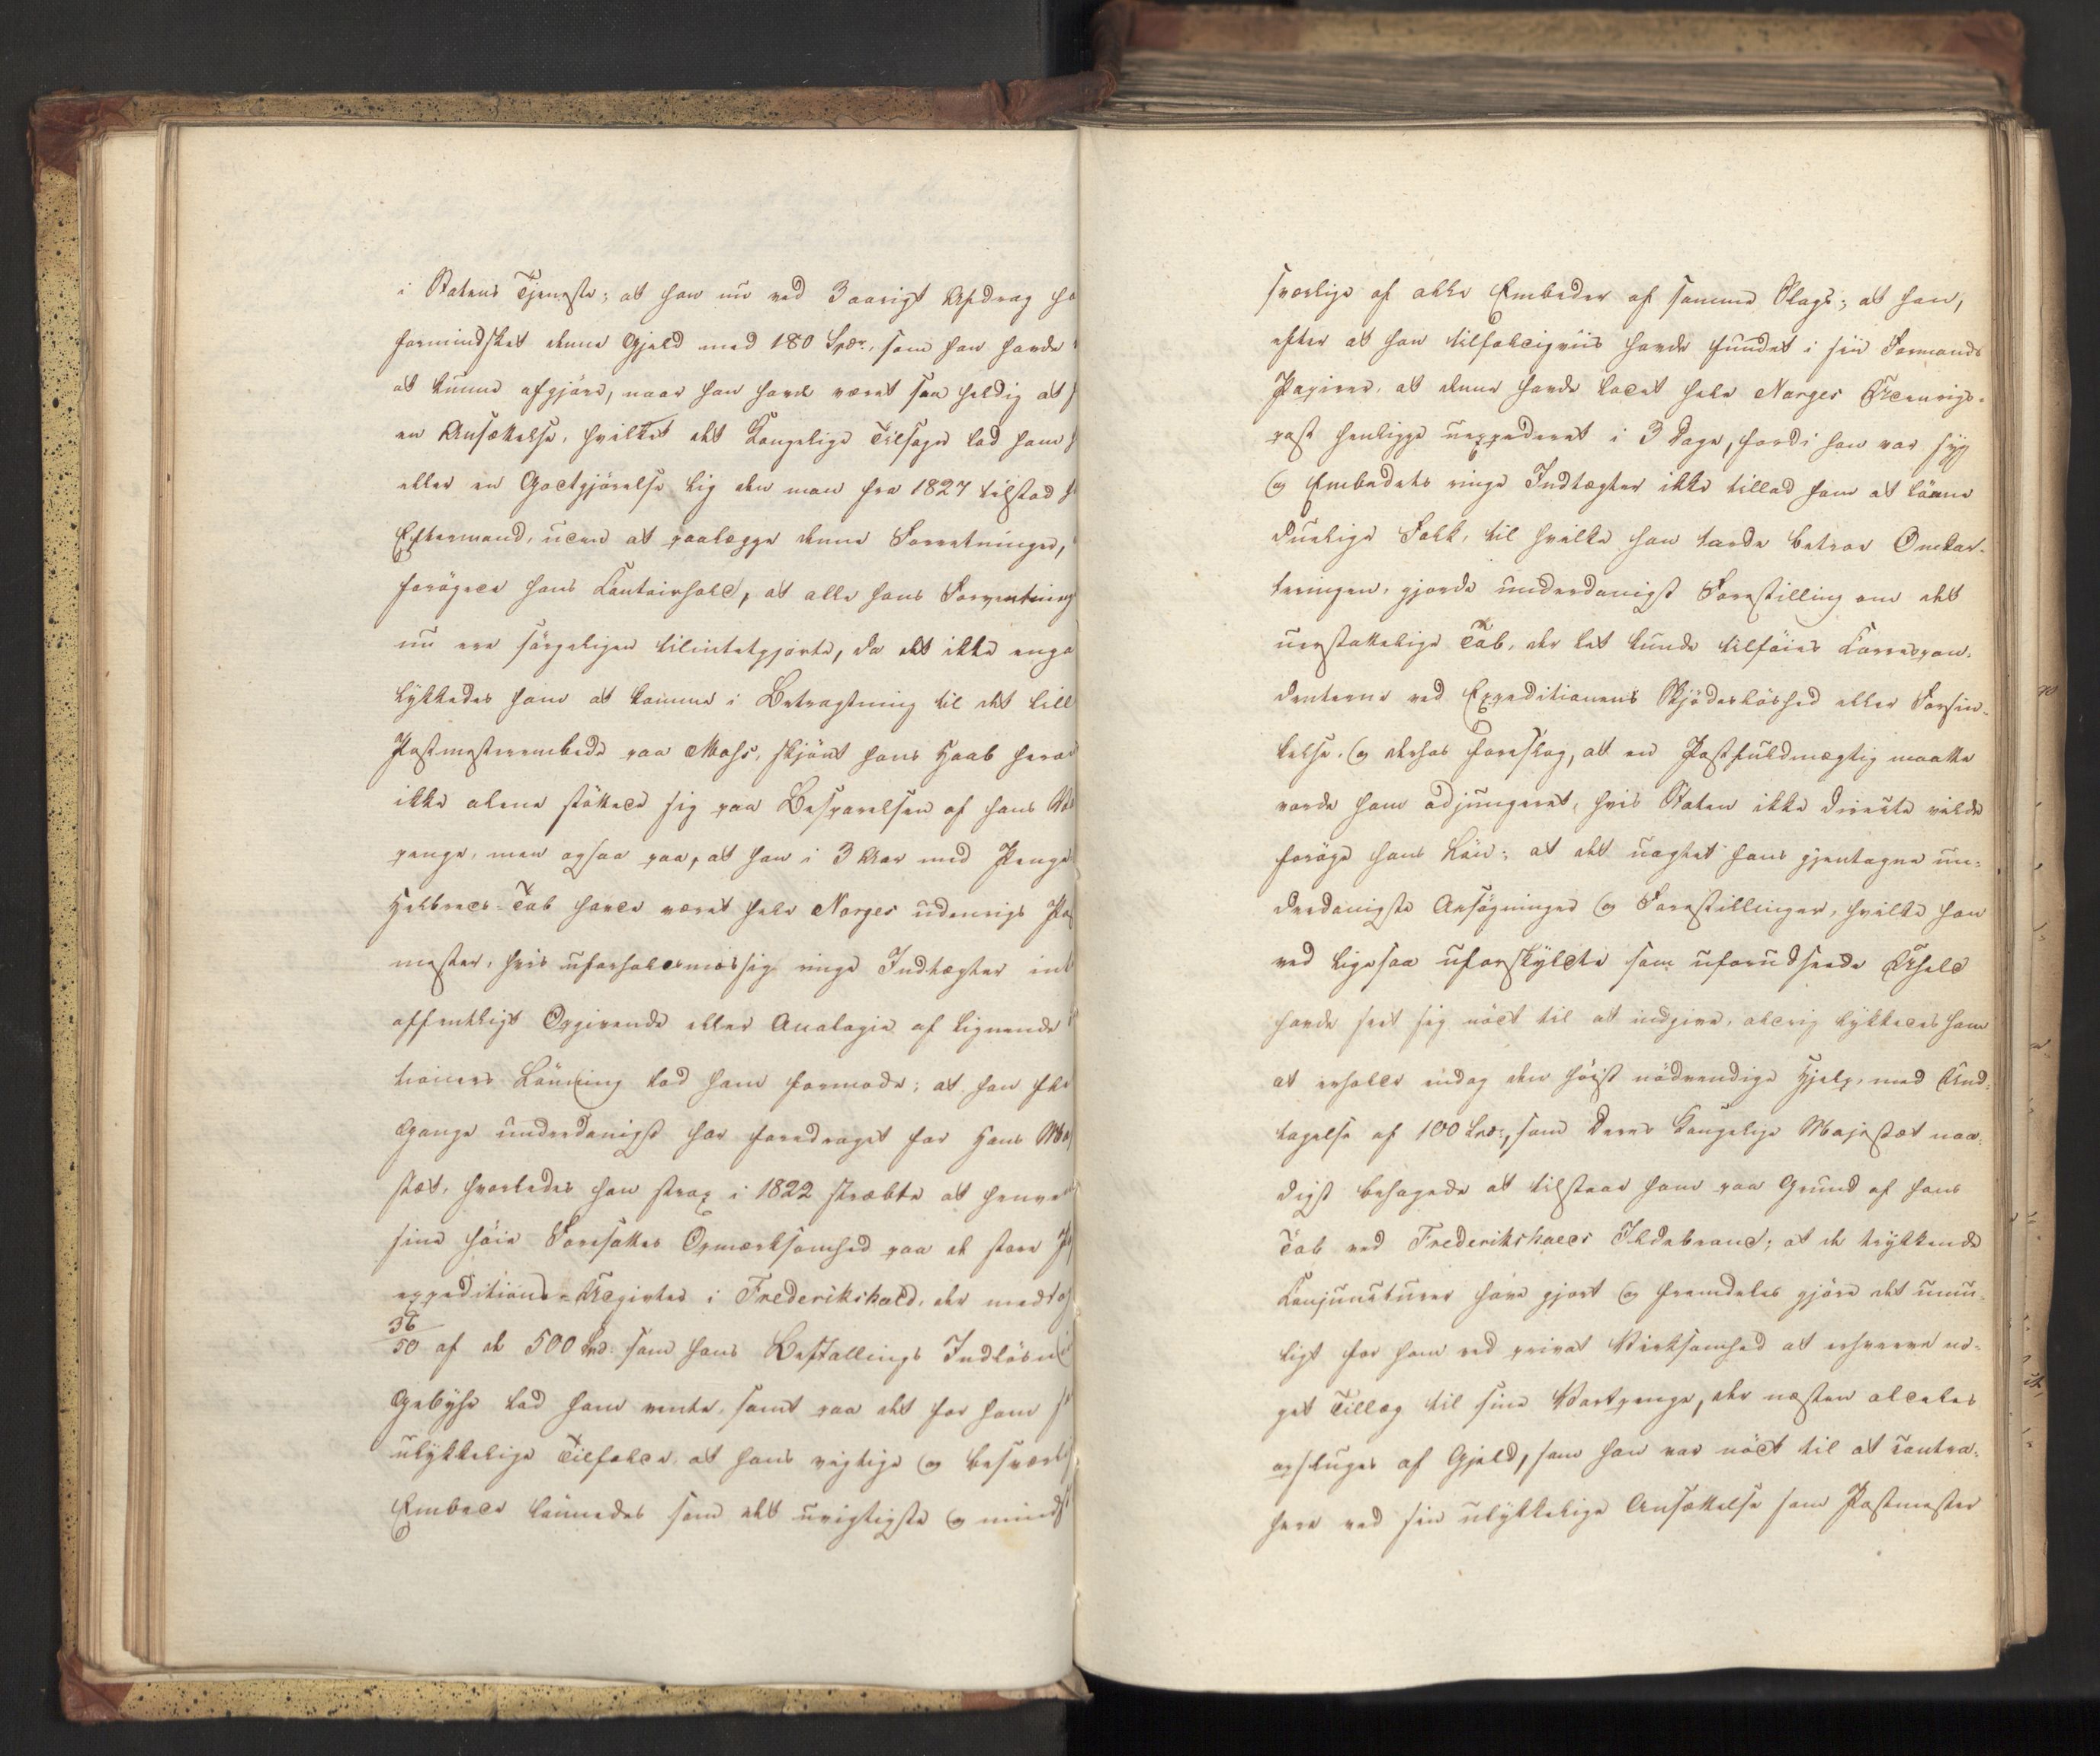 i Statens Tjeneste; at han nu ved 3aarigt Afdrag ha
formindsket denne Gjeld med 180 Spdr., som han havde
at kunne afgjøre, naar han havde været saa heldig at
en Ansættelse, hvilket det Kongelige Tilsagn lod ham
eller en Godtgjørelse lig den man fra 1827 tilstod
Eftermand, uden at paalægge denne Forretninger,
forøgede hans Contoirhold, at alle hans Forventning
nu ere sørgeligen tilintetgjorte, da det ikke enga
lykkedes ham at komme i Betragtning til det lill
Postmesterembede paa Moss, skjønt hans Haab herom
ikke alene støttede sig paa Besparelsen af hans Va
penge, men ogsaa paa, at han i 3 Aar med Penge
Helbreds-Tab havde været hele Norges udenrigs Po
mester, hvis uforholdsmæssig ringe Indtægter int
offentligt Opgivende eller Analogie af lignende
tioners Lønning lod ham formode; at han fle
Gange underdanigst har foredraget for Hans Maj
stæt, hvorledes han strax i 1822 stræbte at henve
sine høie Foresattes Opmærksomhed paa de store P
expeditions-Udgivter i Frederikshald, der medtog
36/50 af de 500 Spd: som hans Bestallings Indløsni
Gebyhr lod ham vente, samt paa det for ham
ulykkelige Tilfælde, at hans vigtige og besværli
Embede lønnedes som det uvigtigste og mindst
svarlige af alle Embeder af samme Slags; at han,
efter at han tilfældigviis havde fundet i sin Formands
Papirer, at denne havde ladet hele Norges Udenrigs-
post henligge uexpederet i 3 Dage, fordi han var syg
og Embedets ringe Indtægter ikke tillod ham at lønne
duelige Folk, til hvilke han turde betroe Omkar-
teringen, gjorde underdanigst Forestilling om det
uerstattelige Tab, der let kunde tilføies Correspon-
denterne ved Expeditionens Skjødesløshed eller Forsin-
kelse, og derhos foreslog, at en Postfuldmægtig maatte
vorde ham adjungeret, hvis Staten ikke directe vilde
forøge hans Løn; at det uagtet hans gjentagne un-
derdanigste Ansøgninger og Forestillinger, hvilke han
ved ligesaa uforskyldte som uforudseede Uheld
havde seet sig nødt til at indgive, aldrig lykkedes ham
at erholde endog den høist nødvendige Hjelp, med Und-
tagelse af 100 Spd:, som Deres Kongelige Majestæt naa-
digst behagede at tilstaae ham paa Grund af hans
Tab ved Frederikshalds Ildebrand; at de trykkende
Conjuncturer have gjort og fremdeles gjøre det umu-
ligt for ham ved privat Virksomhed at erhverve no-
get Tillæg til sine Vartpenge, der næsten aldeles
opsluges af Gjeld, som han var nødt til at contra-
here ved sin ulykkelige Ansættelse som Postmester